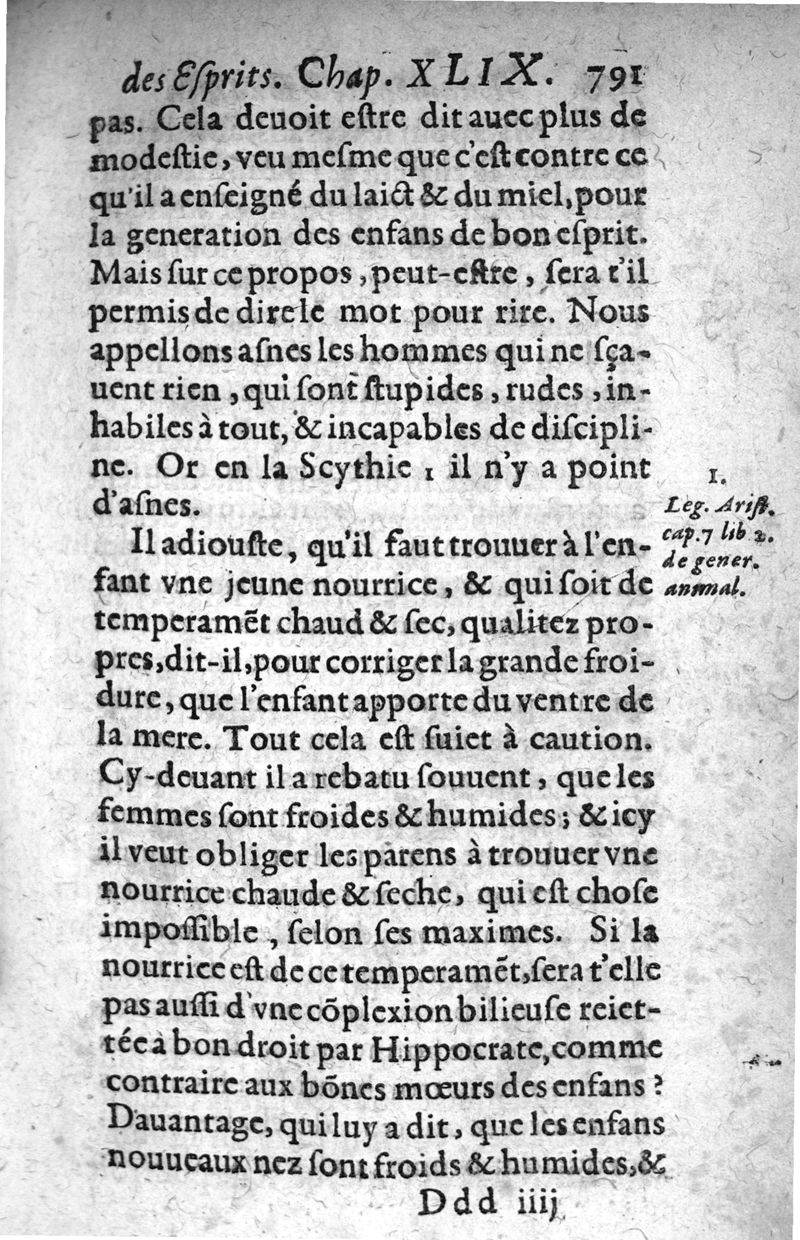 des Eſprits. Chap. XLIX. 791
pas. Cela deuoit eſtre dit auec plus de
modeſtie, veu meſme que c'eſt contre ce
qu'il a enſeigné du laict & du miel, pour
la generation des enfans de bon eſprit.
Mais ſur ce propos, peut-eſtre, ſera t'il
permis de dire le mot pour rire. Nous
appellons aſnes les hommes qui ne ſça-
uent rien, qui ſont ſtupides, rudes, in-
habiles à tout, & incapables de diſcipli-
ne. Or en la Scythie 1 il n'y a point
d'aſnes.
1.
Leg. Ariſt.
cap.7 lib 2.
de gener.
animal.
Il adiouſte, qu'il faut trouuer à l'en-
fant vne jeune nourrice, & qui ſoit de
temperamẽt chaud & ſec, qualitez pro-
pres, dit-il, pour corriger la grande froi-
dure, que l'enfant apporte du ventre de
la mere. Tout cela eſt ſuiet à caution.
Cy-deuant il a rebatu ſouuent, que les
femmes ſont froides & humides; & icy
il veut obliger les parens à trouuer vne
nourrice chaude & ſeche, qui eſt choſe
impoſſible, ſelon ſes maximes. Si la
nourrice eſt de ce temperamẽt, ſera t'elle
pas auſſi d'vne cõplexion bilieuſe reiet-
tée à bon droit par Hippocrate, comme
contraire aux bõnes mœurs des enfans?
Dauantage, qui luy a dit, que les enfans
nouueaux nez ſont froids & humides, &
Ddd iiij